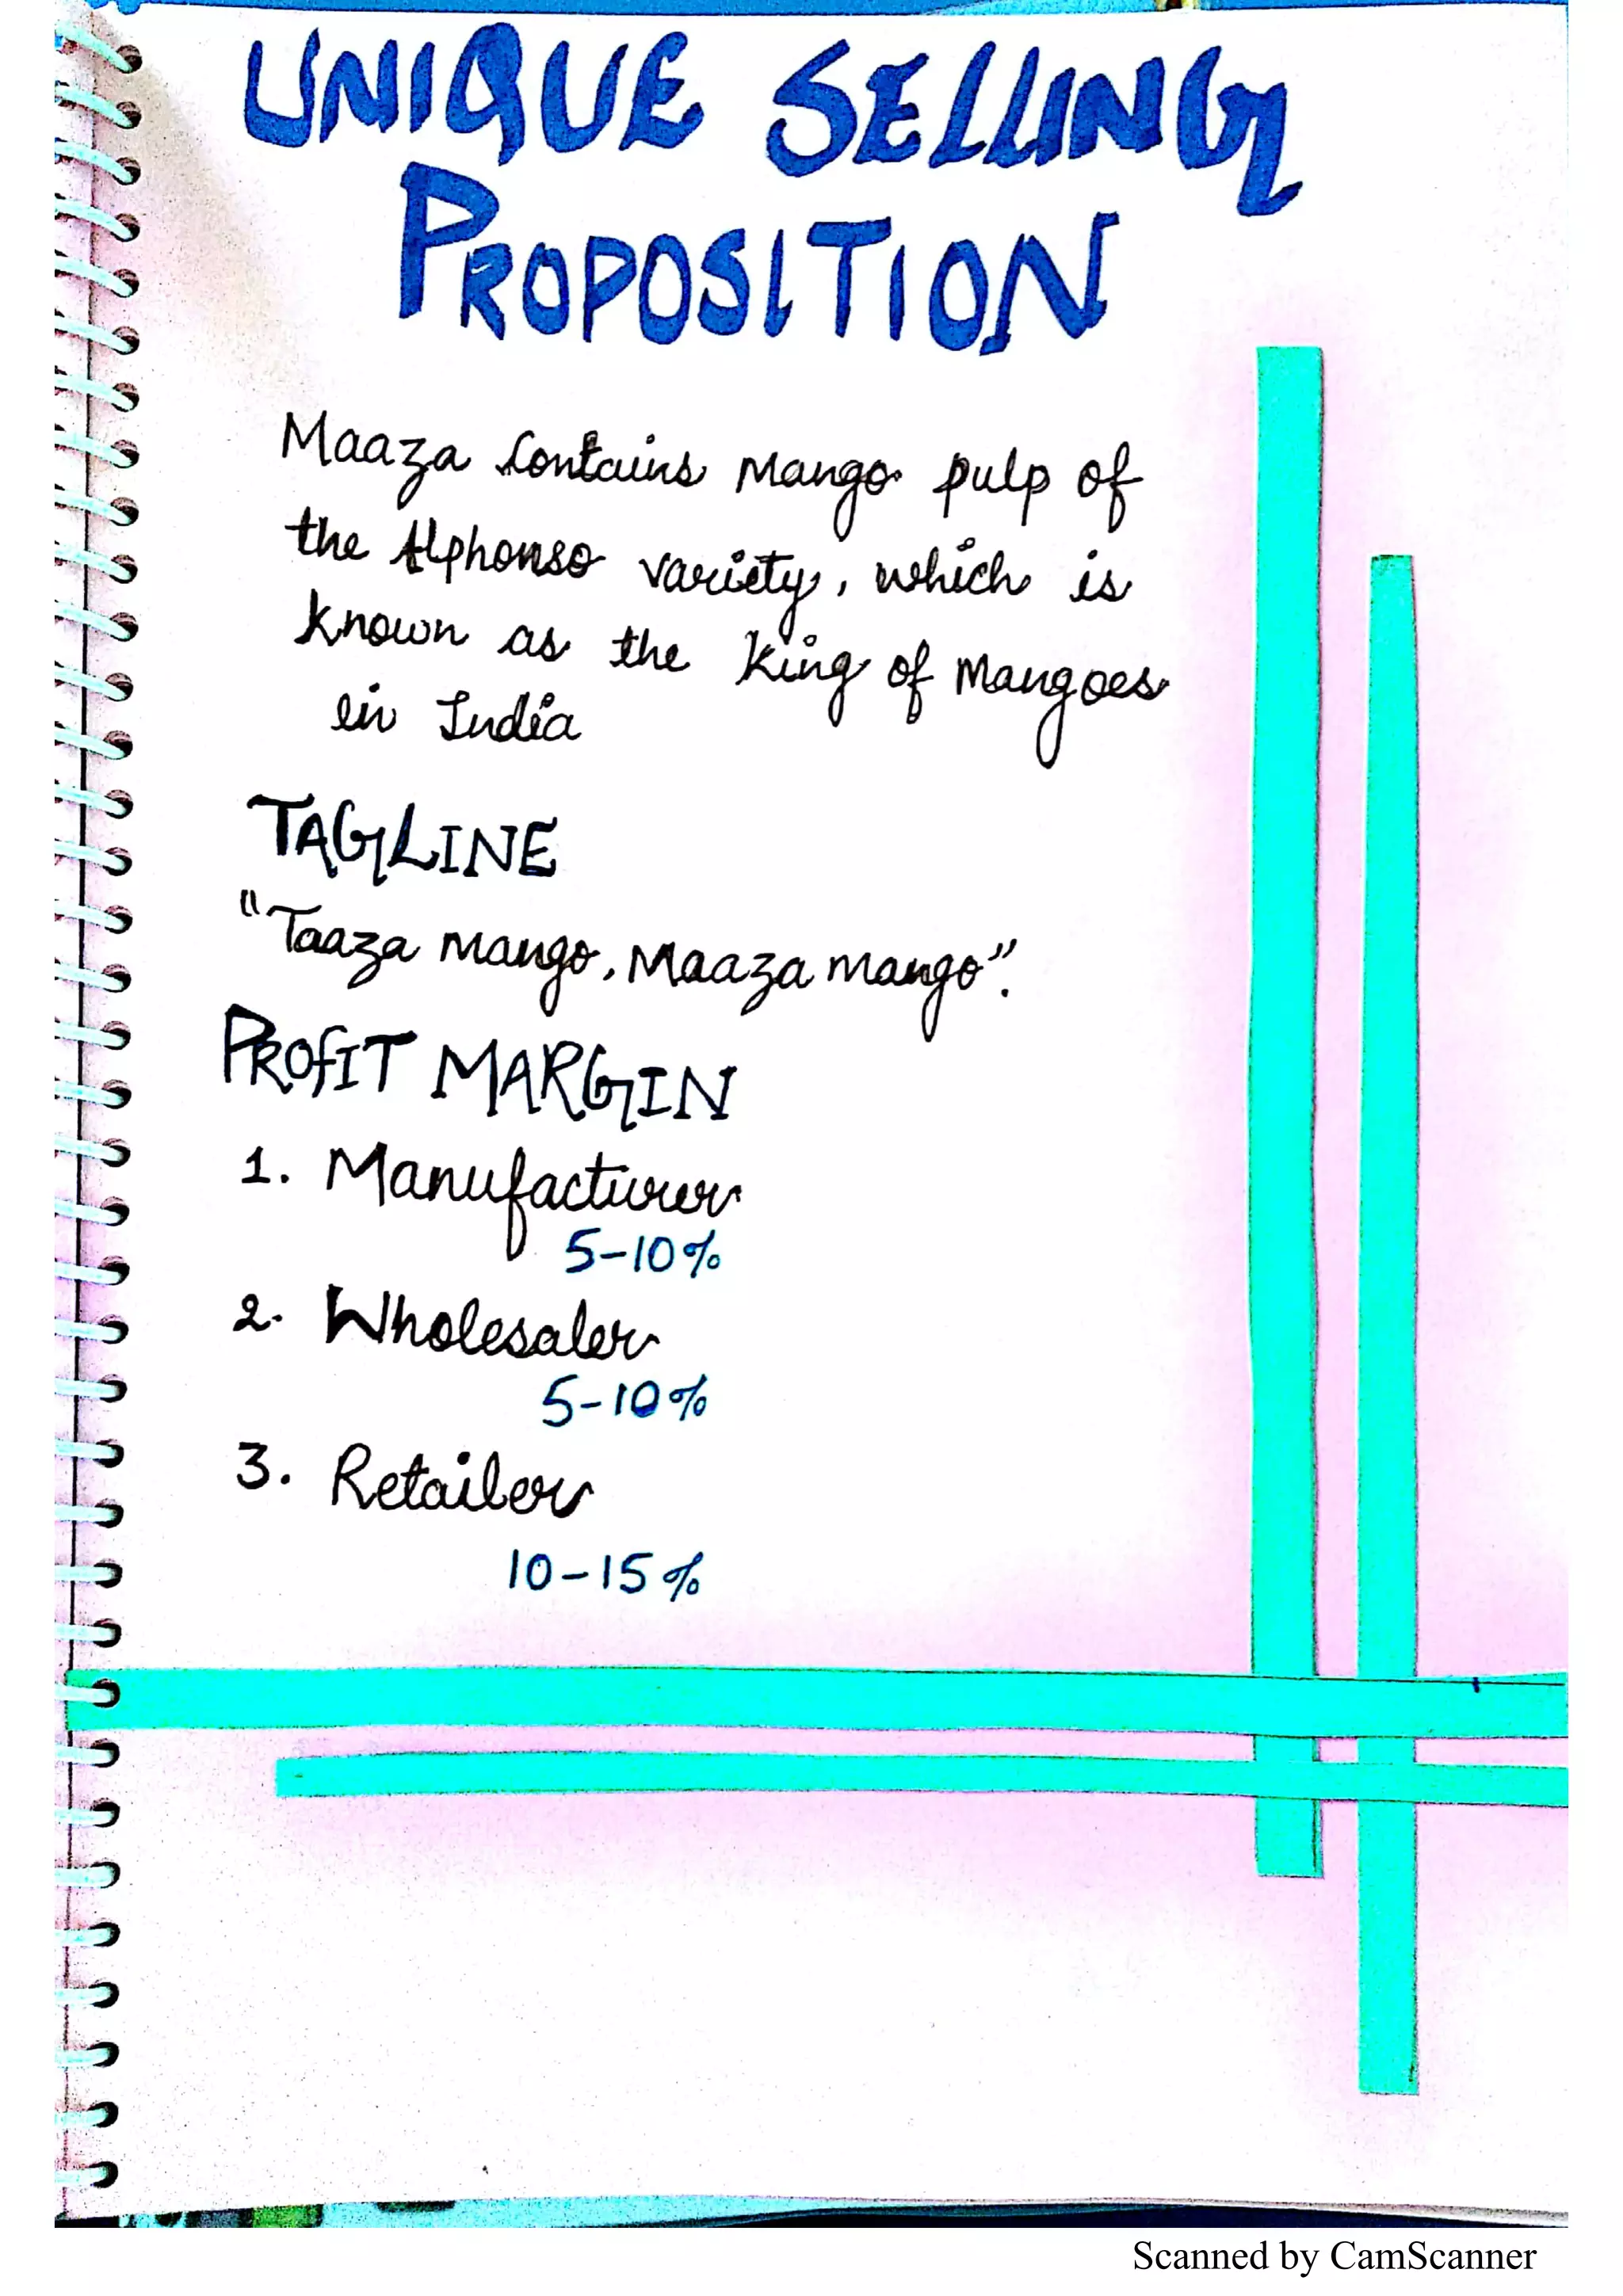 UNIQUE SELLING
PROPOSITION
Maaza contains Mango pulp of
the Alphonso variety, which is
known as the King of Mangoes
in India
TAGLINE
"Taaza mango, Maaza mango".
PROFIT MARGIN
1. Manufacturer
5-10%
2. Wholesaler
5-10%
3. Retailer
10-15%
Scanned by CamScanner